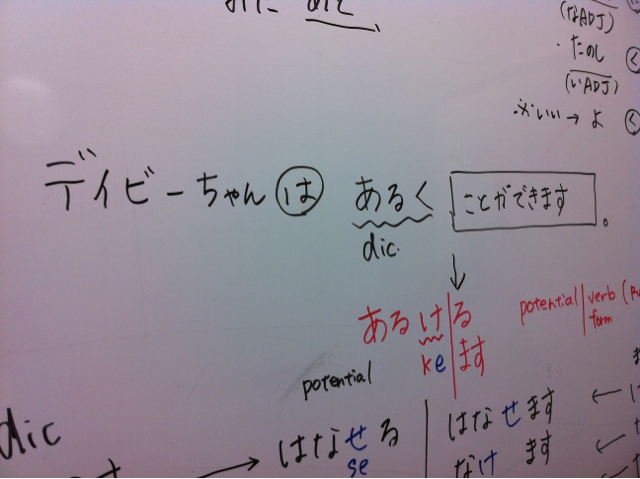 (なADJ)
たのし く
(いADJ)
※いい → よ く
デイビーちゃん は あるく ことができます 。
dic.
↓
あるけ|る
ke|ます
potential | verb
form
potential
はなせる | はなせます ←
se
なけ ます ←
dic
→